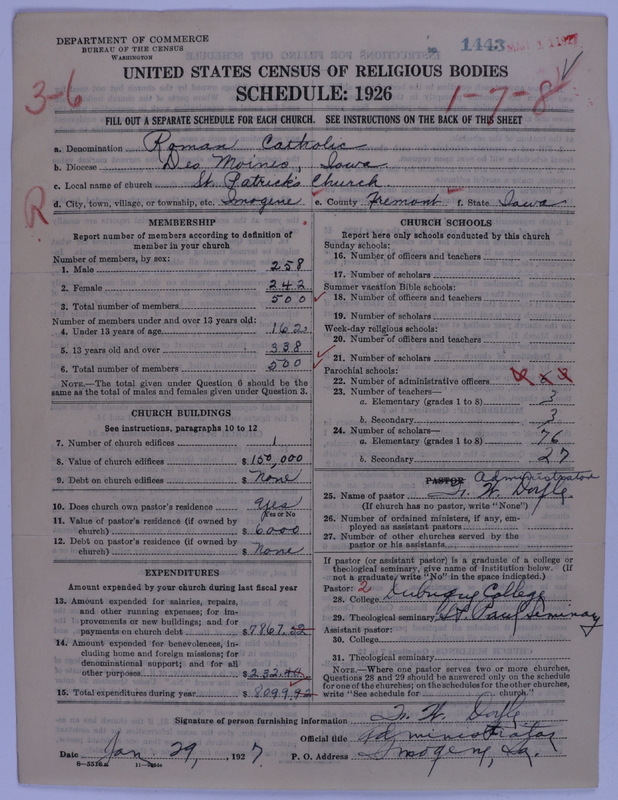 DEPARTMENT OF COMMERCE
BUREAU OF THE CENSUS
WASHINGTON
1443
UNITED STATES CENSUS OF RELIGIOUS BODIES
SCHEDULE: 1926
3-6
1-7-8
FILL OUT A SEPARATE SCHEDULE FOR EACH CHURCH. SEE INSTRUCTIONS ON THE BACK OF THIS SHEET
a. Denomination Roman Catholic
b. Diocese Des Moines, Iowa
c. Local name of church St. Patrick's Church
d. City, town, village, or township, etc. Imogene e. County Fremont f. State Iowa
R
MEMBERSHIP
Report number of members according to definition of member in your church
Number of members, by sex:
1. Male 258
2. Female 242
3. Total number of members 500
Number of members under and over 13 years old:
4. Under 13 years of age 162
5. 13 years old and over 338
6. Total number of members 500
NOTE.—The total given under Question 6 should be the
same as the total of males and females given under Question 3.
CHURCH BUILDINGS
See instructions, paragraphs 10 to 12
7. Number of church edifices 1
8. Value of church edifices $ 150,000
9. Debt on church edifices $ None
10. Does church own pastor's residence Yes
Yes or No
11. Value of pastor's residence (if owned by
church) $ 6000
12. Debt on pastor's residence (if owned by
church) $ None
EXPENDITURES
Amount expended by your church during last fiscal year
13. Amount expended for salaries, repairs,
and other running expenses; for im-
provements or new buildings; and for
payments on church debt $ 7867.52
14. Amount expended for benevolences, in-
cluding home and foreign missions; for
denominational support; and for all
other purposes $ 232.40
15. Total expenditures during year $ 8099.92
CHURCH SCHOOLS
Report here only schools conducted by this church
Sunday schools:
16. Number of officers and teachers
17. Number of scholars
Summer vacation Bible schools:
18. Number of officers and teachers
19. Number of scholars
Week-day religious schools:
20. Number of officers and teachers
21. Number of scholars
Parochial schools:
22. Number of administrative officers
23. Number of teachers—
a. Elementary (grades 1 to 8) 3
b. Secondary 3
24. Number of scholars—
a. Elementary (grades 1 to 8) 76
b. Secondary 27
PASTOR Administrator
25. Name of pastor Fr. W. Doyle
(If church has no pastor, write "None")
26. Number of ordained ministers, if any, em-
ployed as assistant pastors
27. Number of other churches served by the
pastor or his assistants
If pastor (or assistant pastor) is a graduate of a college or
theological seminary, give name of institution below. (If
not a graduate, write "No" in the space indicated.)
Pastor: 2
28. College Dubuque College
29. Theological seminary St. Paul Seminary
Assistant pastor:
30. College
31. Theological seminary
NOTE.—Where one pastor serves two or more churches,
Questions 28 and 29 should be answered only on the schedule
for one of the churches; on the schedules for the other churches,
write "See schedule for church."
Signature of person furnishing information Fr. W. Doyle
Official title Administrator
Date Jan 29, 1927 P. O. Address Imogene, Ia.